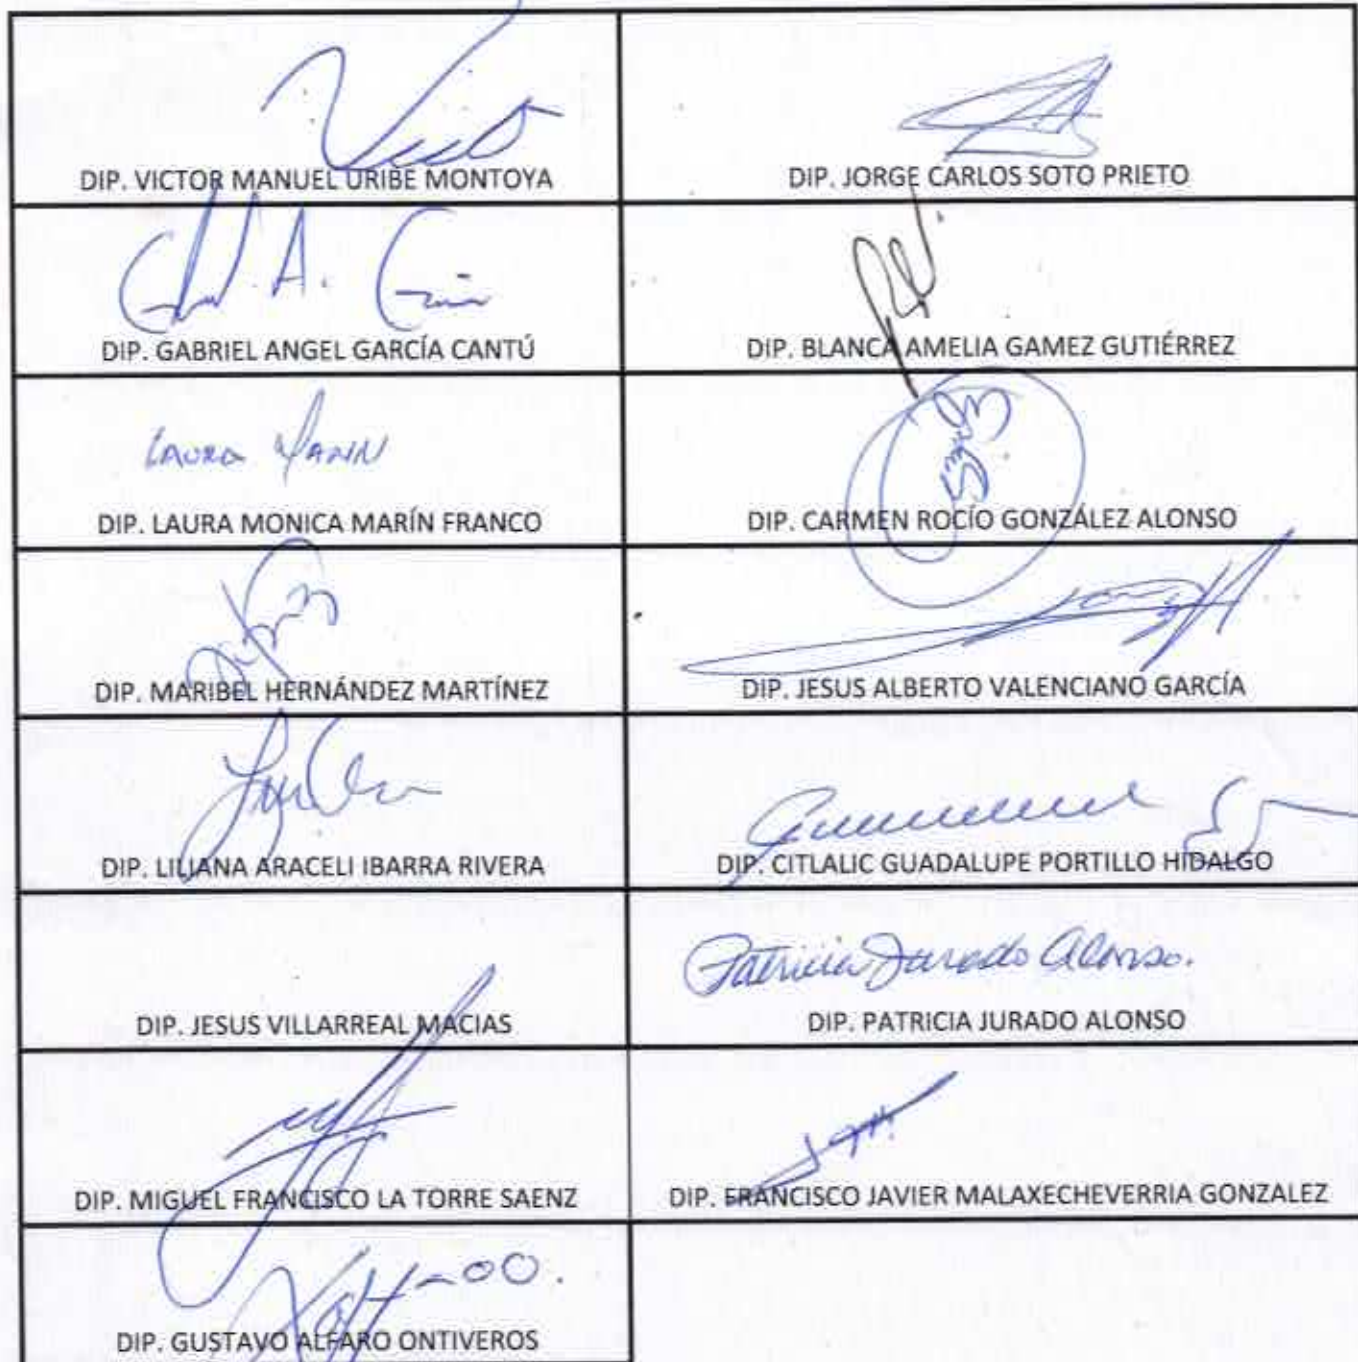 DIP. VICTOR MANUEL URIBE MONTOYA
DIP. JORGE CARLOS SOTO PRIETO
DIP. GABRIEL ANGEL GARCÍA CANTÚ
DIP. BLANCA AMELIA GAMEZ GUTIÉRREZ
LAURA MARIN
DIP. LAURA MONICA MARÍN FRANCO
DIP. CARMEN ROCÍO GONZÁLEZ ALONSO
DIP. MARIBEL HERNÁNDEZ MARTÍNEZ
DIP. JESUS ALBERTO VALENCIANO GARCÍA
DIP. LILIANA ARACELI IBARRA RIVERA
DIP. CITLALIC GUADALUPE PORTILLO HIDALGO
DIP. JESUS VILLARREAL MACIAS
Patricia Jurado Alonso.
DIP. PATRICIA JURADO ALONSO
DIP. MIGUEL FRANCISCO LA TORRE SAENZ
DIP. FRANCISCO JAVIER MALAXECHEVERRIA GONZALEZ
DIP. GUSTAVO ALFARO ONTIVEROS